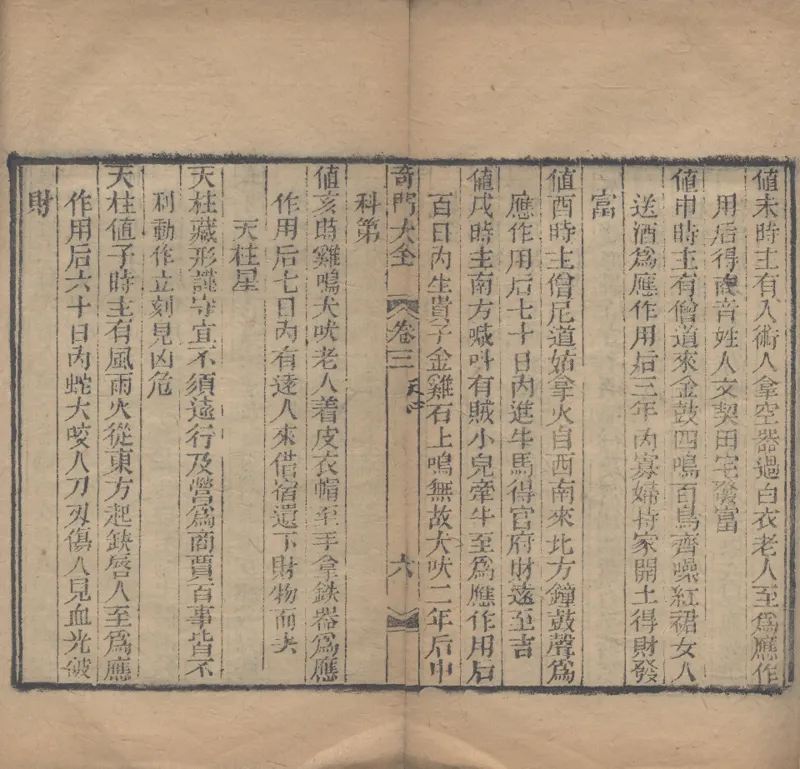 値未時主有入術人拿空器過白衣老人至爲應作
用后得商音姓人文契田宅發富
値申時主有僧道來金鼓四鳴百鳥齊噪紅裙女人
送酒爲應作用后三年内寡婦持家開土得財發
富
値酉時主僧尼道姑拿火自西南來北方鐘鼓聲爲
應作用后七十日内進牛馬得官府財遠至吉
値戌時主南方喊呌有賊小兒牽牛至爲應作用后
百日内生貴子金雞石上鳴無故犬吠二年后中
奇門大全 卷三 天心 六
科第
値亥時雞鳴犬吠老人着皮衣帽至手拿鉄器爲應
作用后七日内有遠人來借宿遺下財物而去
天柱星
天柱藏形謹守宜不須遠行及營爲商賈百事皆不
利動作立刻見凶危
天柱値子時主有風雨火從東方起鈌唇人至爲應
作用后六十日内蛇犬咬人刀刃傷人見血光破
財